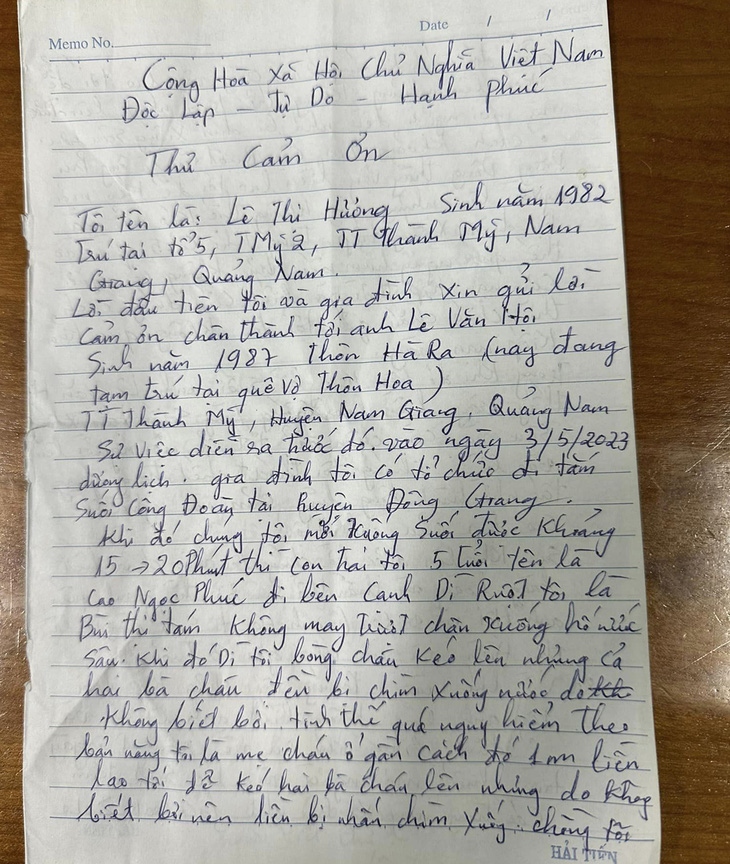 Date / /
Memo No.
Cộng Hoà Xã Hội Chủ Nghĩa Việt Nam
Độc Lập - Tự Do - Hạnh phúc
Thư Cảm Ơn
Tôi tên là: Lê Thị Hường Sinh năm 1982
Trú tại tổ 5, TMỹ 2, TT Thành Mỹ, Nam
Giang, Quảng Nam.
Lời đầu tiên tôi và gia đình xin gửi lời
cảm ơn chân thành tới anh Lê Văn Hội
Sinh năm 1987 Thôn Hà Ra (nay đang
tạm trú tại quê vợ Thôn Hoa)
TT Thành Mỹ, Huyện Nam Giang, Quảng Nam
Sự việc diễn ra trước đó vào ngày 3/5/2023
dương lịch. gia đình tôi có tổ chức đi tắm
Suối Công Đoàn tại huyện Đông Giang.
Khi đó chúng tôi mới xuống Suối được Khoảng
15 → 20 Phút thì con trai tôi 5 tuổi tên là
Cao Ngọc Phúc đi bên cạnh Dì Ruột tôi là
Bùi thị tám không may trượt chân xuống hố nước
Sâu. Khi đó Dì tôi bồng cháu kéo lên nhưng cả
hai bà cháu đều bị chìm xuống nước do
không biết bơi, tình thế quá nguy hiểm theo
bản năng tôi là mẹ cháu ở gần cách đó 1m liền
lao tới để kéo hai bà cháu lên nhưng do không
biết bơi nên liền bị nhấn chìm xuống. chồng tôi
HẢI TIẾN